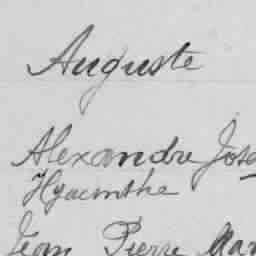 Auguste
Alexandre Jose
Hyacinthe
Jean Pierre Mar